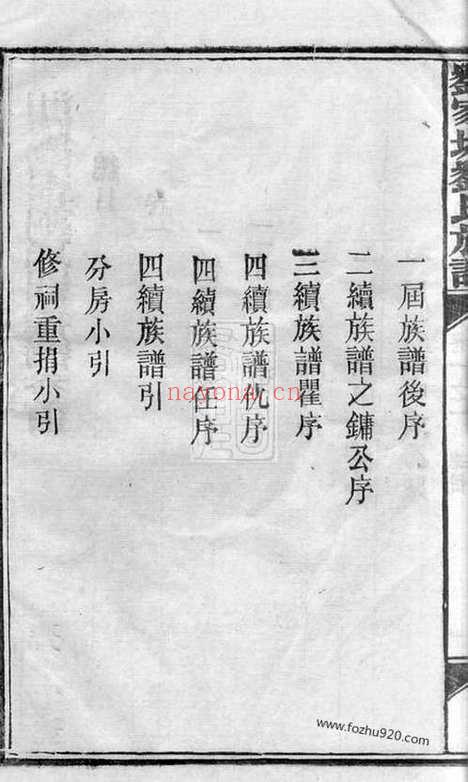 劉家塅劉氏族譜
一屆族譜後序
二續族譜之鏞公序
三續族譜瞿序
四續族譜仇序
四續族譜任序
四續族譜引
分房小引
修祠重捐小引
nayona.cn
www.fozhu920.com